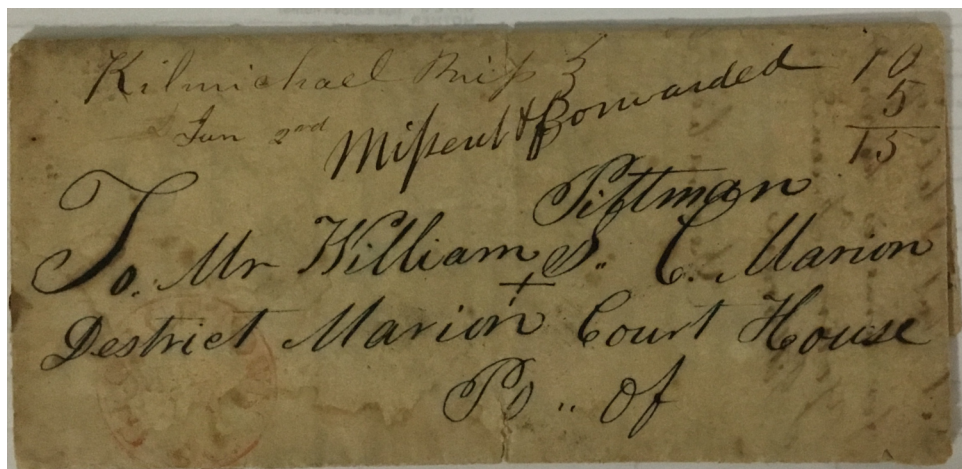 Kilmichael Miss 3
Jan 2nd
Missent & Forwarded
10
5
15
Pittman
To. Mr William + S. C. Marion
Destrict Marion Court House
Po .. of